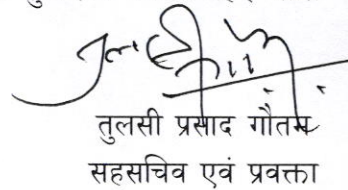 तुलसी प्रसाद गौतम
सहसचिव एवं प्रवक्ता